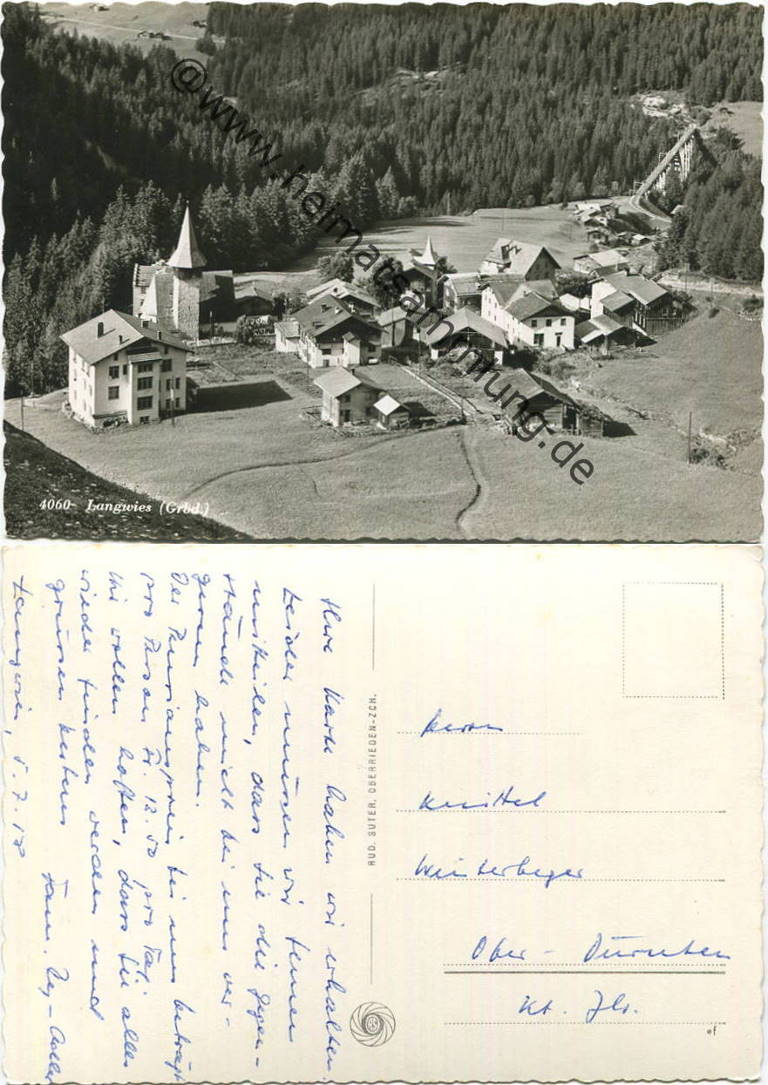 @www.heimatsammlung.de
4060- Langwies (Grbd.)
Ihre Karte haben wir erhalten.
Leider müssen wir Ihnen
mitteilen, dass Sie die Gegen-
stände nicht bei uns ver-
gessen haben.
Der Pensionspreis bei uns beträgt
pro Person Fr. 12.50 pro Tag.
Wir wollen hoffen, dass Sie alles
wieder finden werden und
grüssen bestens Fam.
Langwies, 5.7.
RUD. SUTER, OBERRIEDEN-ZCH.
Herrn
Knittel
Ober - Dürnten
Kt. Zh.